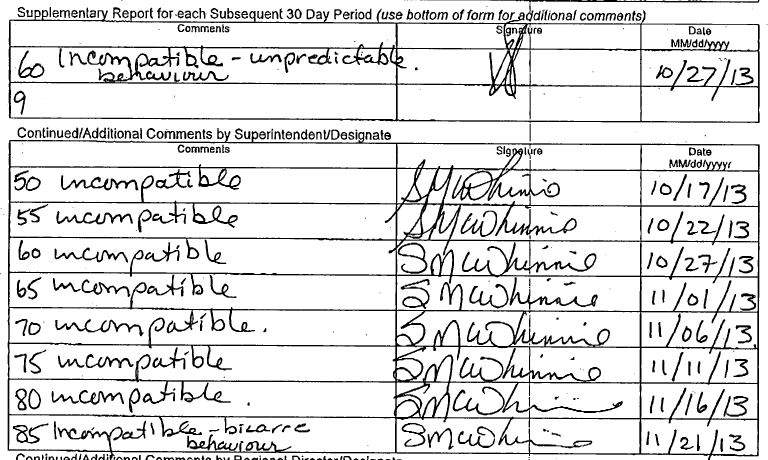 Supplementary Report for each Subsequent 30 Day Period (use bottom of form for additional comments)
Comments Signature Date
MM/dd/yyyy
60 Incompatible - unpredictable behaviour. 10/27/13
9
Continued/Additional Comments by Superintendent/Designate
Comments Signature Date
MM/dd/yyyy
50 incompatible SMcWhinnie 10/17/13
55 incompatible SMcWhinnie 10/22/13
60 incompatible SMcWhinnie 10/27/13
65 incompatible SMcWhinnie 11/01/13
70 incompatible. SMcWhinnie 11/06/13
75 incompatible SMcWhinnie 11/11/13
80 incompatible. SMcWhinnie 11/16/13
85 Incompatible - bizarre behaviour SMcWhinnie 11/21/13
Continued/Additional Comments by Regional Director/Designate